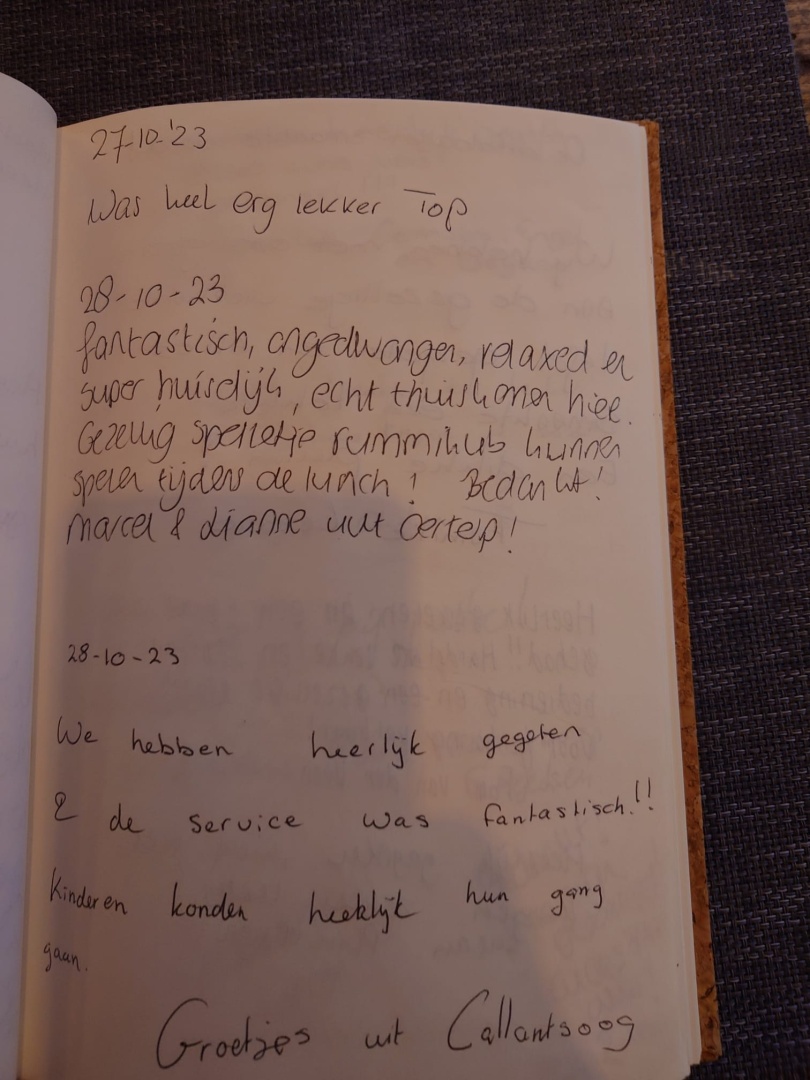 27-10-'23
Was heel erg lekker Top
28-10-23
fantastisch, ongedwongen, relaxed en
super huiselijk, echt thuiskomen hier.
Gezellig spelletje rummikub kunnen
spelen tijdens de lunch! Bedankt!
Marcel & Dianne uut Oerterp!
28-10-23
We hebben heerlijk gegeten
& de service was fantastisch!!!
Kinderen konden heeklijk hun gang
gaan.
Groetjes uit Callantsoog